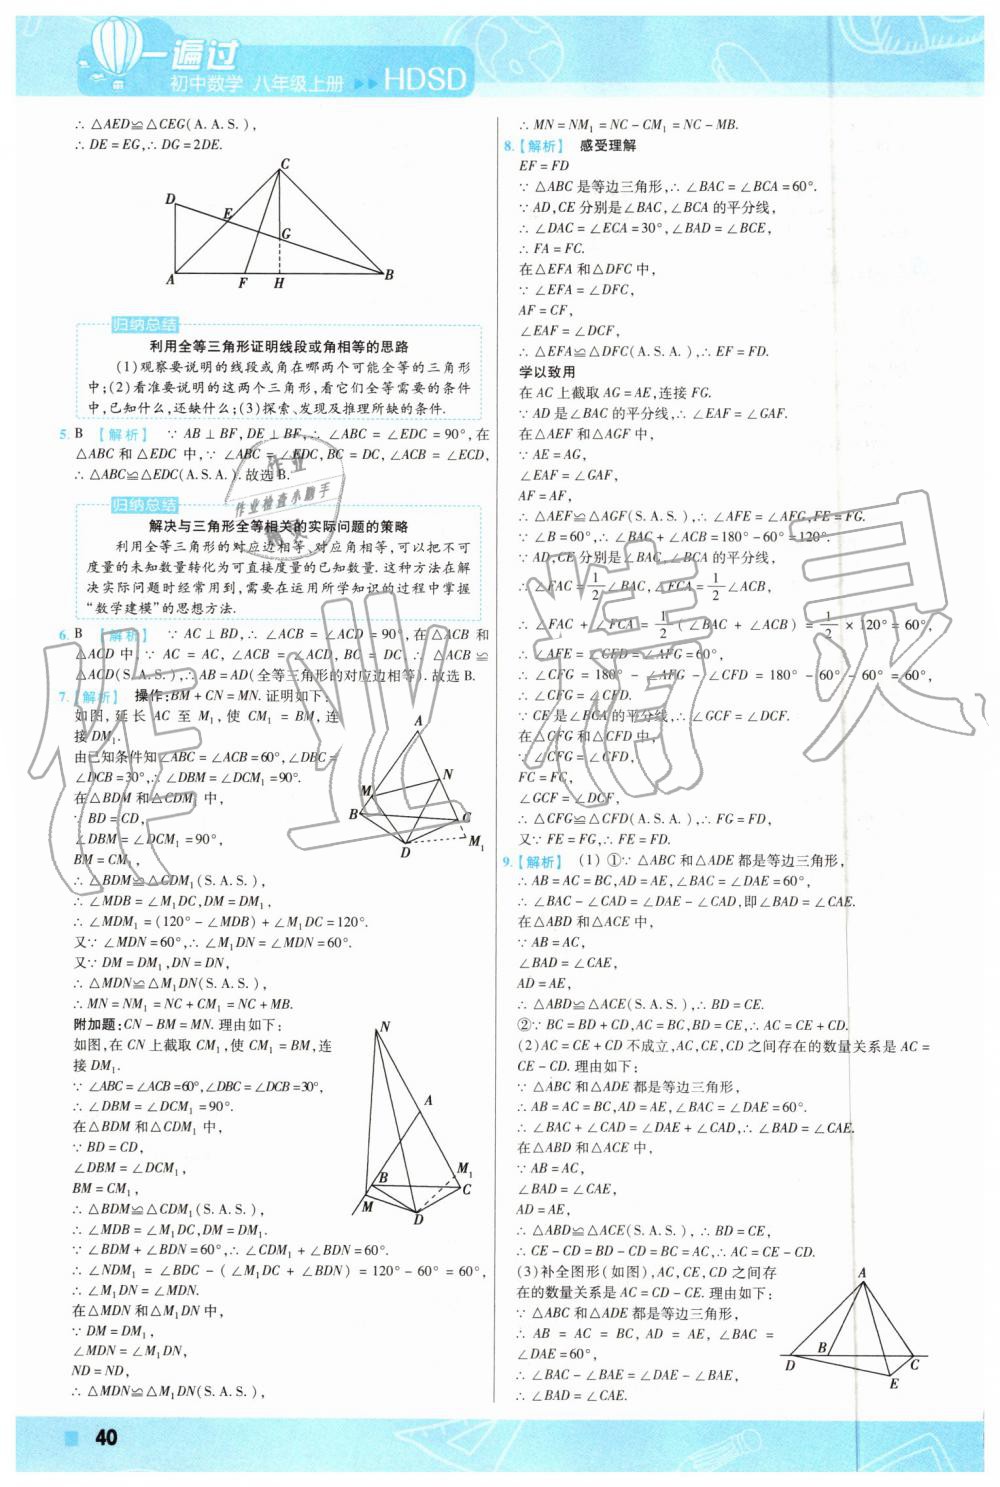 一遍过
初中数学 八年级上册 HDSD
∴ △AED≌△CEG(A.A.S.),
∴ DE=EG,∴ DG=2DE.
C
D
E
G
A
F
H
B
归纳总结
利用全等三角形证明线段或角相等的思路
(1)观察要说明的线段或角在哪两个可能全等的三角形
中;(2)看准要说明的这两个三角形,看它们全等需要的条件
中,已知什么,还缺什么;(3)探索、发现及推理所缺的条件.
5. B 【解析】 ∵ AB⊥BF,DE⊥BF,∴ ∠ABC=∠EDC=90°,在
△ABC 和△EDC 中,∵ ∠ABC=∠EDC, BC=DC, ∠ACB=∠ECD,
∴ △ABC≌△EDC(A.S.A.).故选 B.
归纳总结
解决与三角形全等相关的实际问题的策略
利用全等三角形的对应边相等、对应角相等,可以把不可
度量的未知数量转化为可直接度量的已知数量.这种方法在解
决实际问题时经常用到,需要在运用所学知识的过程中掌握
“数学建模”的思想方法.
6. B 【解析】 ∵ AC⊥BD,∴ ∠ACB=∠ACD=90°,在△ACB 和
△ACD 中,∵ AC=AC, ∠ACB=∠ACD, BC=DC,∴ △ACB≌
△ACD(S.A.S.),∴ AB=AD(全等三角形的对应边相等).故选 B.
7.【解析】 操作:BM+CN=MN. 证明如下:
如图,延长 AC 至 M₁,使 CM₁=BM,连
接 DM₁.
由已知条件知∠ABC=∠ACB=60°,∠DBC=
∠DCB=30°,∴ ∠DBM=∠DCM₁=90°.
在△BDM 和△CDM₁ 中,
∵ BD=CD,
∠DBM=∠DCM₁=90°,
BM=CM₁,
∴ △BDM≌△CDM₁(S.A.S.),
∴ ∠MDB=∠M₁DC,DM=DM₁,
∴ ∠MDM₁=(120°-∠MDB)+∠M₁DC=120°.
又∵ ∠MDN=60°,∴ ∠M₁DN=∠MDN=60°.
又∵ DM=DM₁,DN=DN,
∴ △MDN≌△M₁DN(S.A.S.),
∴ MN=NM₁=NC+CM₁=NC+MB.
A
N
M
B
C
D
M₁
附加题:CN-BM=MN. 理由如下:
如图,在 CN 上截取 CM₁,使 CM₁=BM,连
接 DM₁.
∵ ∠ABC=∠ACB=60°,∠DBC=∠DCB=30°,
∴ ∠DBM=∠DCM₁=90°.
在△BDM 和△CDM₁ 中,
∵ BD=CD,
∠DBM=∠DCM₁,
BM=CM₁,
∴ △BDM≌△CDM₁(S.A.S.),
∴ ∠MDB=∠M₁DC,DM=DM₁.
∵ ∠BDM+∠BDN=60°,∴ ∠CDM₁+∠BDN=60°.
∴ ∠NDM₁=∠BDC-(∠M₁DC+∠BDN)=120°-60°=60°,
∴ ∠M₁DN=∠MDN.
在△MDN 和△M₁DN 中,
∵ DM=DM₁,
∠MDN=∠M₁DN,
ND=ND,
∴ △MDN≌△M₁DN(S.A.S.),
N
A
M₁
B
C
M
D
∴ MN=NM₁=NC-CM₁=NC-MB.
8.【解析】 感受理解
EF=FD
∵ △ABC 是等边三角形,∴ ∠BAC=∠BCA=60°.
∵ AD,CE 分别是∠BAC,∠BCA 的平分线,
∴ ∠DAC=∠ECA=30°,∠BAD=∠BCE,
∴ FA=FC.
在△EFA 和△DFC 中,
∵ ∠EFA=∠DFC,
AF=CF,
∠EAF=∠DCF,
∴ △EFA≌△DFC(A.S.A.),∴ EF=FD.
学以致用
在 AC 上截取 AG=AE,连接 FG.
∵ AD 是∠BAC 的平分线,∴ ∠EAF=∠GAF.
在△AEF 和△AGF 中,
∵ AE=AG,
∠EAF=∠GAF,
AF=AF,
∴ △AEF≌△AGF(S.A.S.),∴ ∠AFE=∠AFG,FE=FG.
∵ ∠B=60°,∴ ∠BAC+∠ACB=180°-60°=120°.
∵ AD,CE 分别是∠BAC,∠BCA 的平分线,
∴ ∠FAC=1/2∠BAC,∠FCA=1/2∠ACB,
∴ ∠FAC+∠FCA=1/2(∠BAC+∠ACB)=1/2×120°=60°,
∴ ∠AFE=∠CFD=∠AFG=60°,
∴ ∠CFG=180°-∠AFG-∠CFD=180°-60°-60°=60°,
∴ ∠CFG=∠CFD.
∵ CE 是∠BCA的平分线,∴ ∠GCF=∠DCF.
在△CFG 和△CFD 中,
∵ ∠CFG=∠CFD,
FC=FC,
∠GCF=∠DCF,
∴ △CFG≌△CFD(A.S.A.),∴ FG=FD,
又∵ FE=FG,∴ FE=FD.
9.【解析】 (1) ①∵ △ABC 和△ADE 都是等边三角形,
∴ AB=AC=BC,AD=AE,∠BAC=∠DAE=60°,
∴ ∠BAC-∠CAD=∠DAE-∠CAD,即∠BAD=∠CAE.
在△ABD 和△ACE 中,
∵ AB=AC,
∠BAD=∠CAE,
AD=AE,
∴ △ABD≌△ACE(S.A.S.),∴ BD=CE.
②∵ BC=BD+CD,AC=BC,BD=CE,∴ AC=CE+CD.
(2)AC=CE+CD 不成立,AC,CE,CD 之间存在的数量关系是 AC=
CE-CD. 理由如下:
∵ △ABC 和△ADE 都是等边三角形,
∴ AB=AC=BC,AD=AE,∠BAC=∠DAE=60°.
∴ ∠BAC+∠CAD=∠DAE+∠CAD,∴ ∠BAD=∠CAE.
在△ABD 和△ACE 中,
∵ AB=AC,
∠BAD=∠CAE,
AD=AE,
∴ △ABD≌△ACE(S.A.S.),∴ BD=CE,
∴ CE-CD=BD-CD=BC=AC,∴ AC=CE-CD.
(3)补全图形(如图),AC,CE,CD 之间存
在的数量关系是 AC=CD-CE. 理由如下:
∵ △ABC 和△ADE 都是等边三角形,
∴ AB=AC=BC, AD=AE, ∠BAC=
∠DAE=60°,
∴ ∠BAC-∠BAE=∠DAE-∠BAE,
∴ ∠BAD=∠CAE.
A
D
B
C
E
40
作业
作业检查小助手
精灵
作业精灵